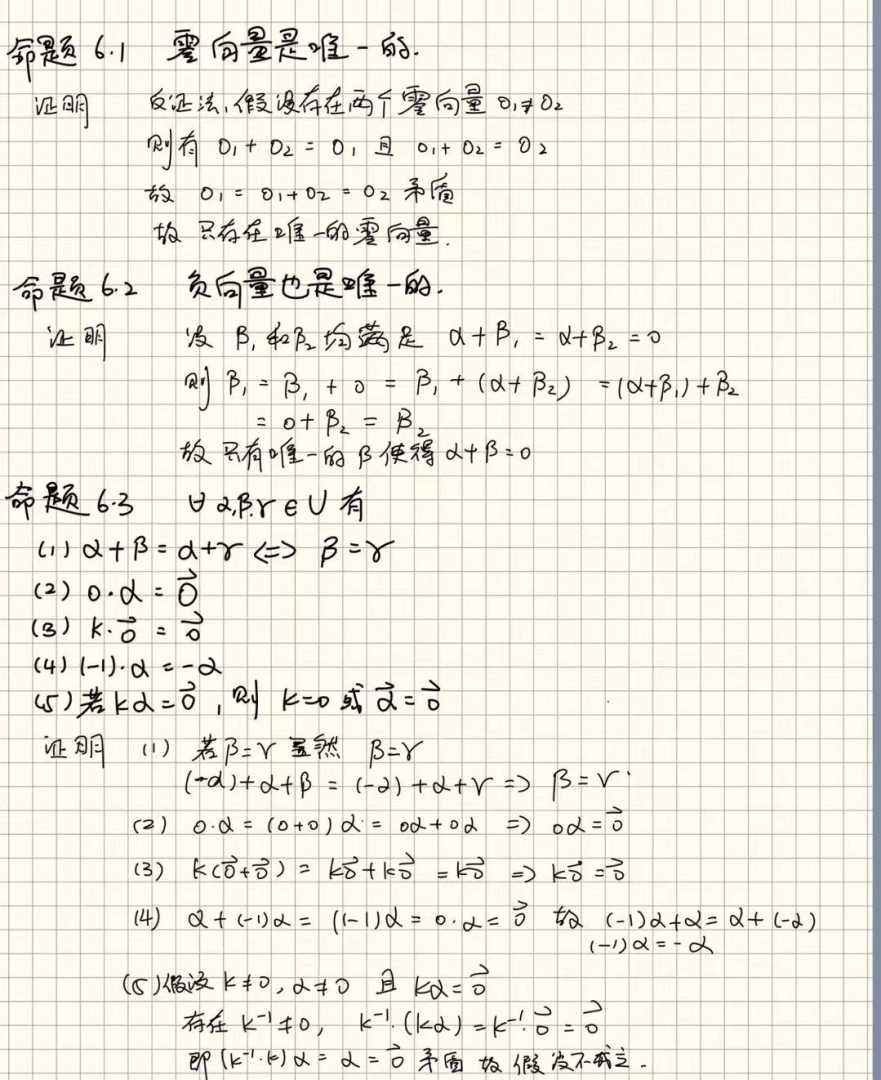 命题 6.1 零向量是唯一的.
证明 反证法,假设存在两个零向量 0₁≠0₂
则有 0₁ + 0₂ = 0₁ 且 0₁+ 0₂ = 0₂
故 0₁ = 0₁+0₂ = 0₂ 矛盾
故 只存在唯一的零向量.
命题 6.2 负向量也是唯一的.
证明 设 β₁ 和β₂ 均满足 α+β₁ = α+β₂ = 0
则 β₁ = β₁ + 0 = β₁ + (α+ β₂) = (α+β₁) + β₂
= 0+ β₂ = β₂
故 只有唯一的 β 使得 α+β=0
命题 6.3 ∀ α,β,γ ∈ U 有
(1) α+β = α+γ <=> β=γ
(2) 0·α = 0⃗
(3) k·0⃗ = 0⃗
(4) (-1)·α = -α
(5) 若 kα = 0⃗ , 则 k=0 或 α⃗ = 0⃗
证明 (1) 若β=γ 显然 β=γ
(-α)+α+β = (-α)+α+γ => β=γ.
(2) 0·α = (0+0)α = 0α+0α => 0α=0⃗
(3) k(0⃗+0⃗) = k0⃗+k0⃗ = k0⃗ => k0⃗ =0⃗
(4) α+(-1)α = (1-1)α = 0·α = 0⃗ 故 (-1)α+α = α+(-α)
(-1)α = -α
(5) 假设 k≠0, α≠0 且 kα = 0⃗
存在 k⁻¹ ≠0, k⁻¹·(kα) = k⁻¹·0⃗ = 0⃗
即 (k⁻¹·k)α = α = 0⃗ 矛盾 故 假设不成立.